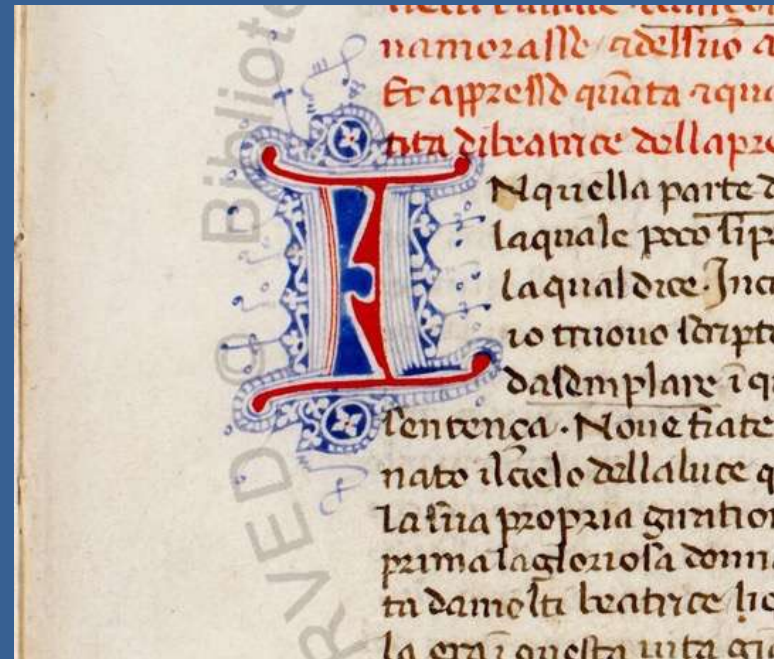 namorasse
Et appresso quãta
tita di beatrice della pre
INquella parte d
laquale poco sip
laqual dice. Inci
io truouo scripte
dasemplare ĩ q
sentença. Noue fiate
nato ilcielo dellaluce q
la sua propria giration
prima lagloriosa donna
ta damolti beatrice
la era ĩ questa uita gi
Bibliote
RVED ©